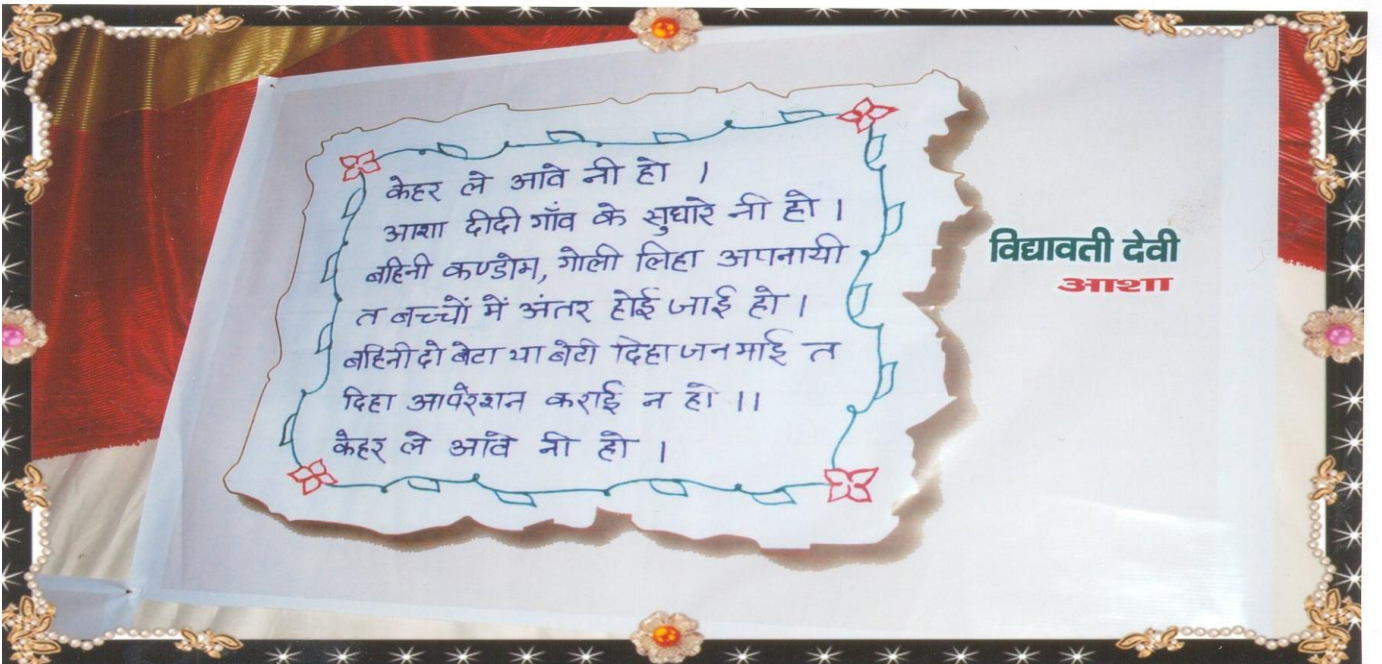 केहर ले आवे नी हो ।
आशा दीदी गाँव के सुधारे नी हो ।
बहिनी कण्डोम, गोली लिहा अपनायी
त बच्चों में अंतर होई जाई हो ।
बहिनी दो बेटा या बेटी दिहा जनमाई त
दिहा आपरेशन कराई न हो ।।
केहर ले आवे नी हो ।
विद्यावती देवी
आशा